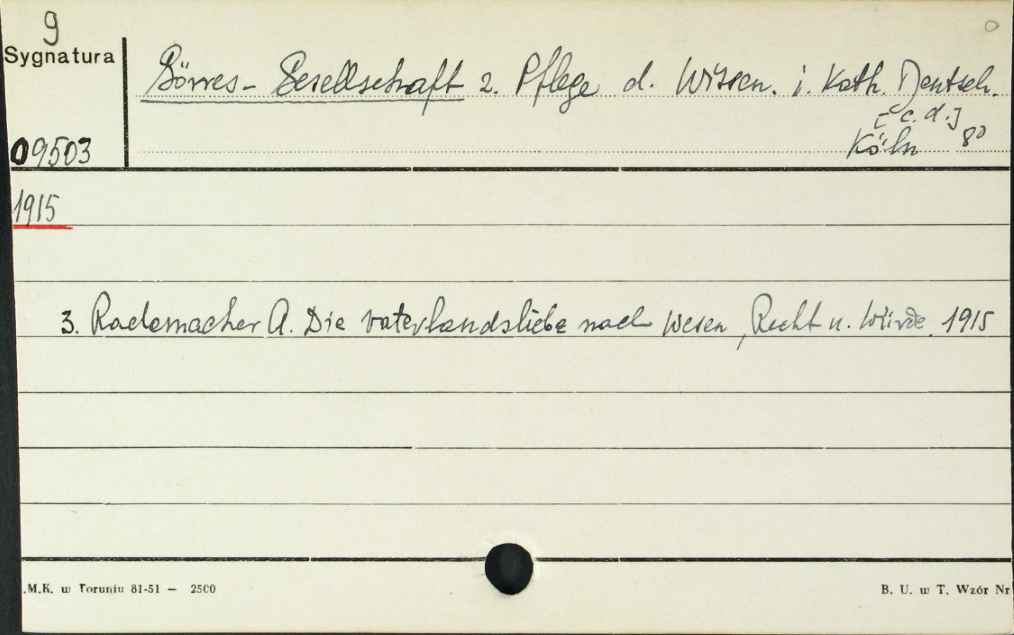 9
Sygnatura
Görres-Gesellschaft z. Pflege d. Wissen. i. Kath. Deutsch.
[c. d.]
09503
Köln 8°
1915
3. Rademacher A. Die Vaterlandsliebe nach Wesen, Recht u. Würde. 1915
.M.K. w Toruniu 81-51 — 2500
B. U. w T. Wzór Nr